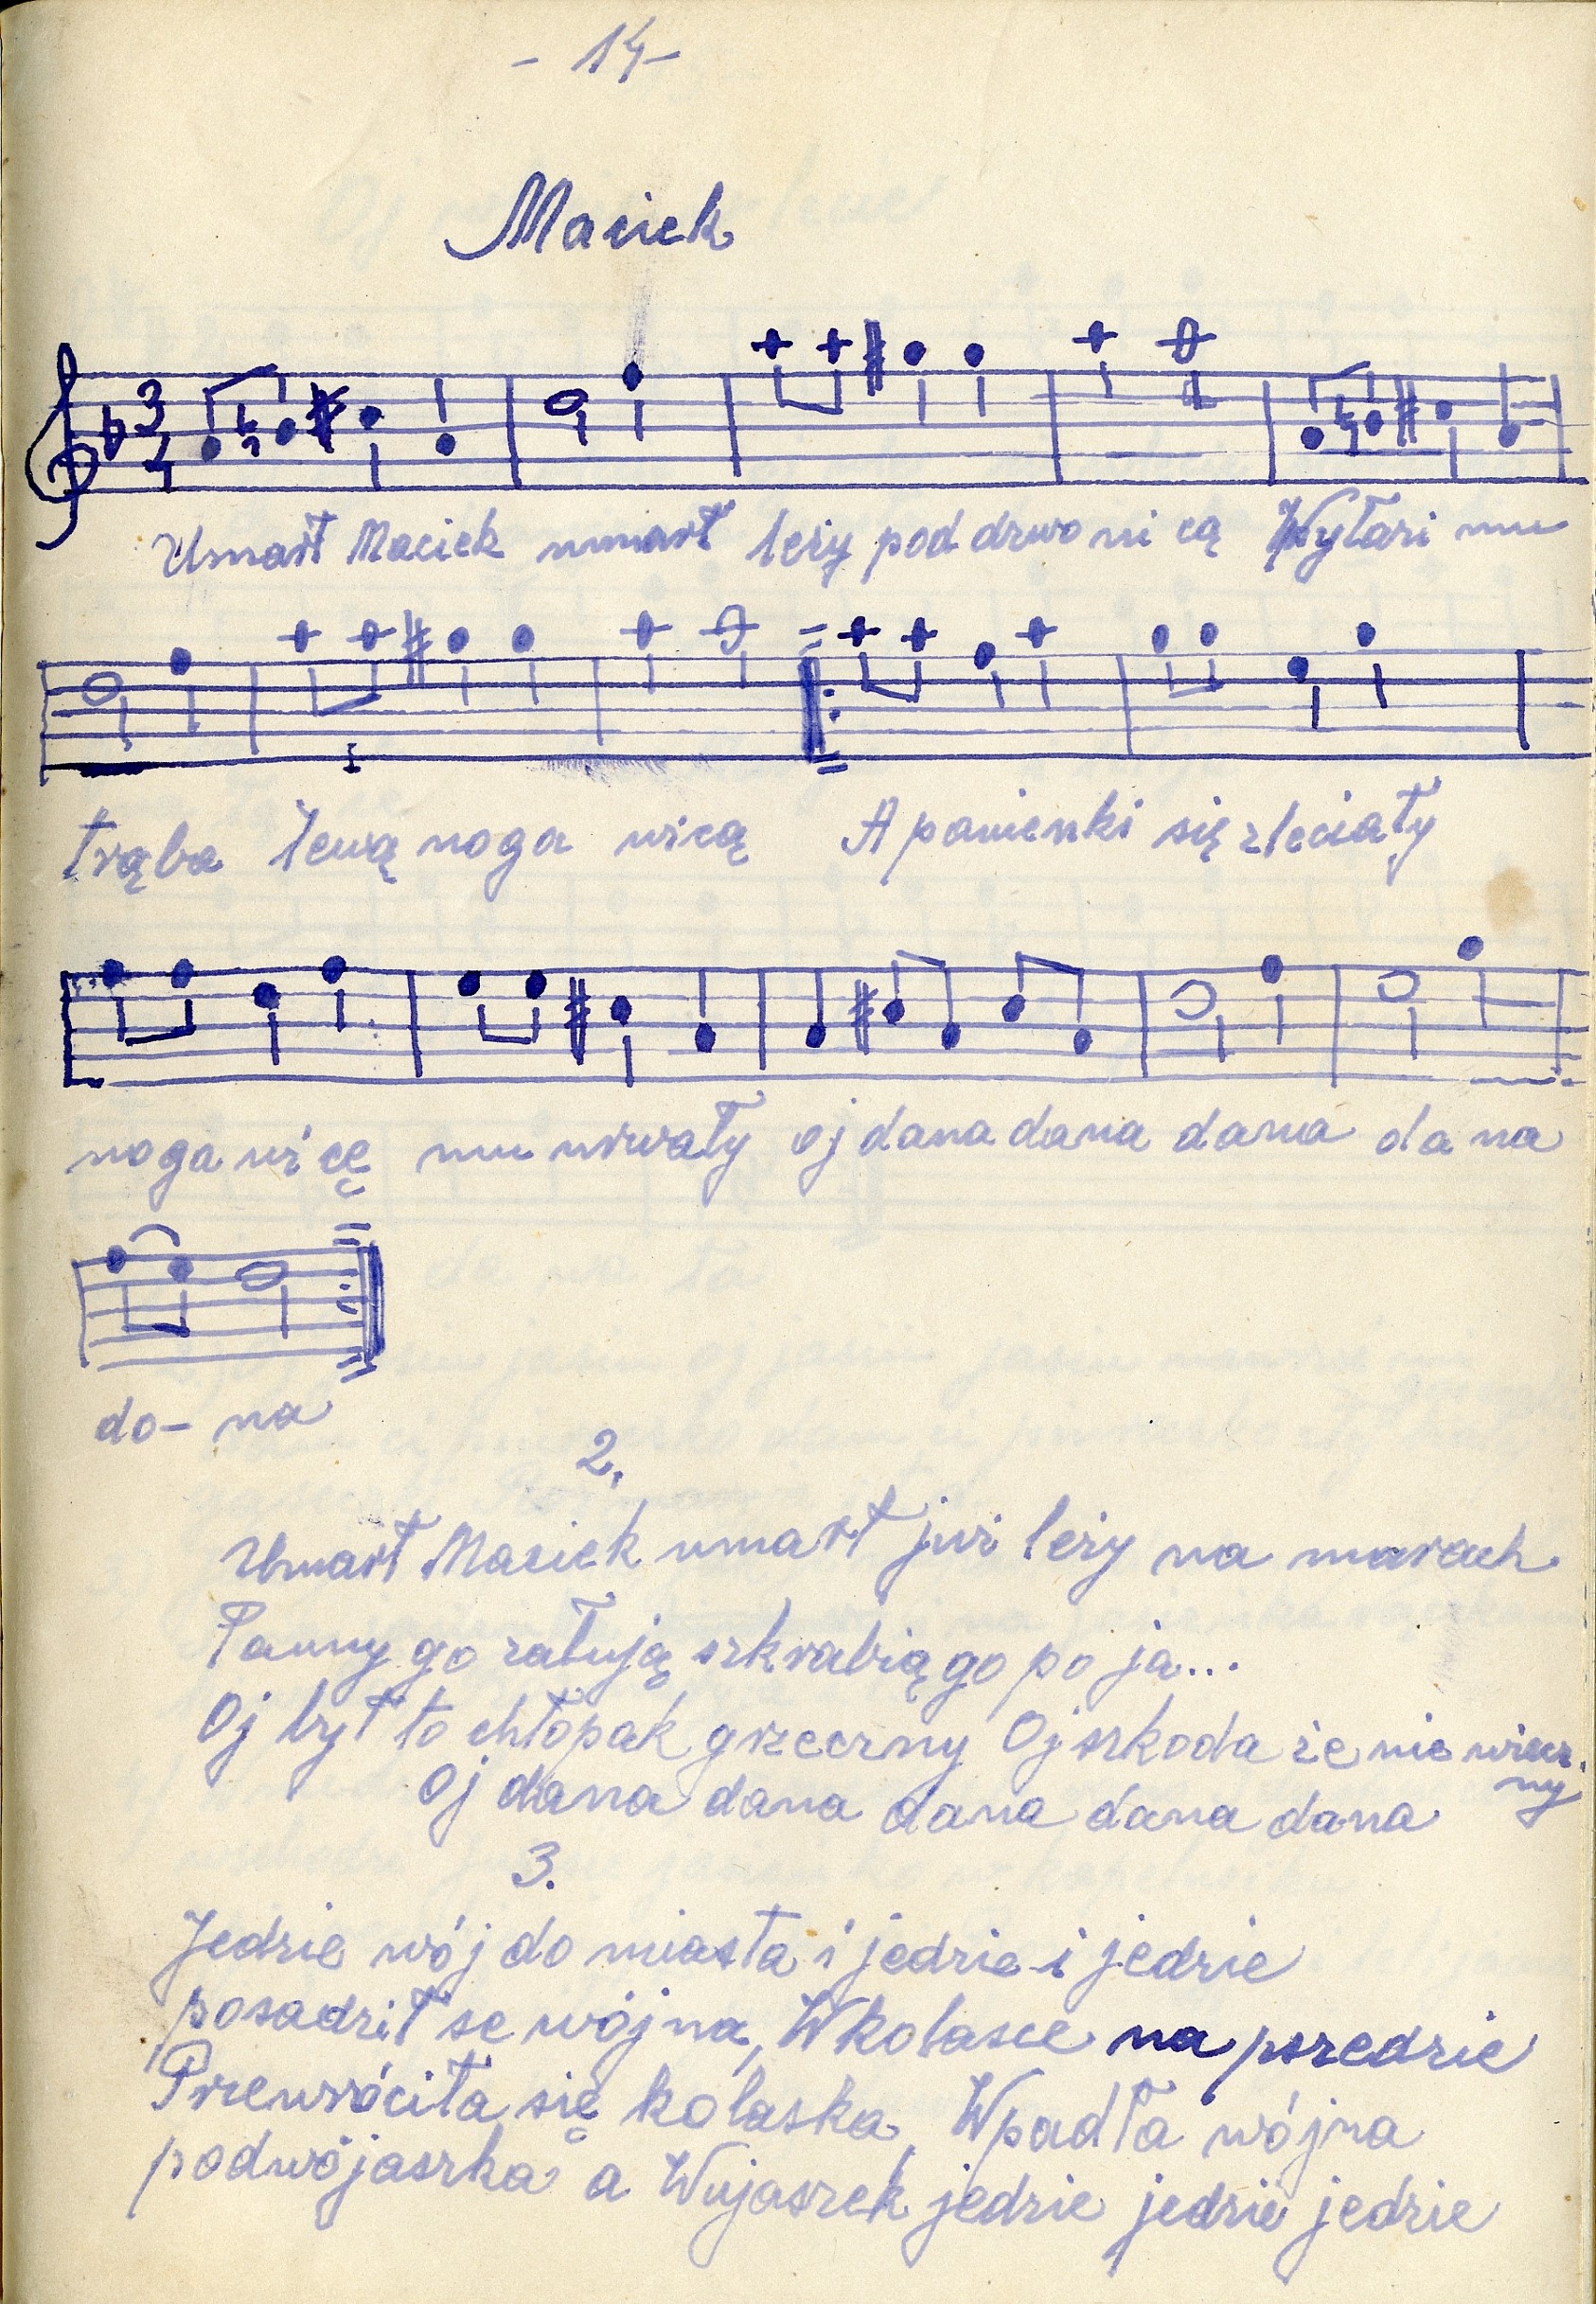 - 14 -
Maciek
3
4
Umarł Maciek umarł leży pod dzwo ni cą Wyłazi mu
trąba lewą noga wicą A panienki się zleciały
noga wi cę mu urwały oj dana dana dana da na
do- na
2.
Umarł Maciek umarł już leży na marach
Panny go ratują szkrabią go po ja...
Oj był to chłopak grzeczny Oj szkoda że nie wiecz-
ny
Oj dana dana dana dana dana
3.
Jedzie wój do miasta i jedzie i jedzie
posadził se wójną, W kolasce na przedzie
Przewróciła się kolaska, Wpadła wójna
pod wójaszka a Wujaszek jedzie jedzie jedzie